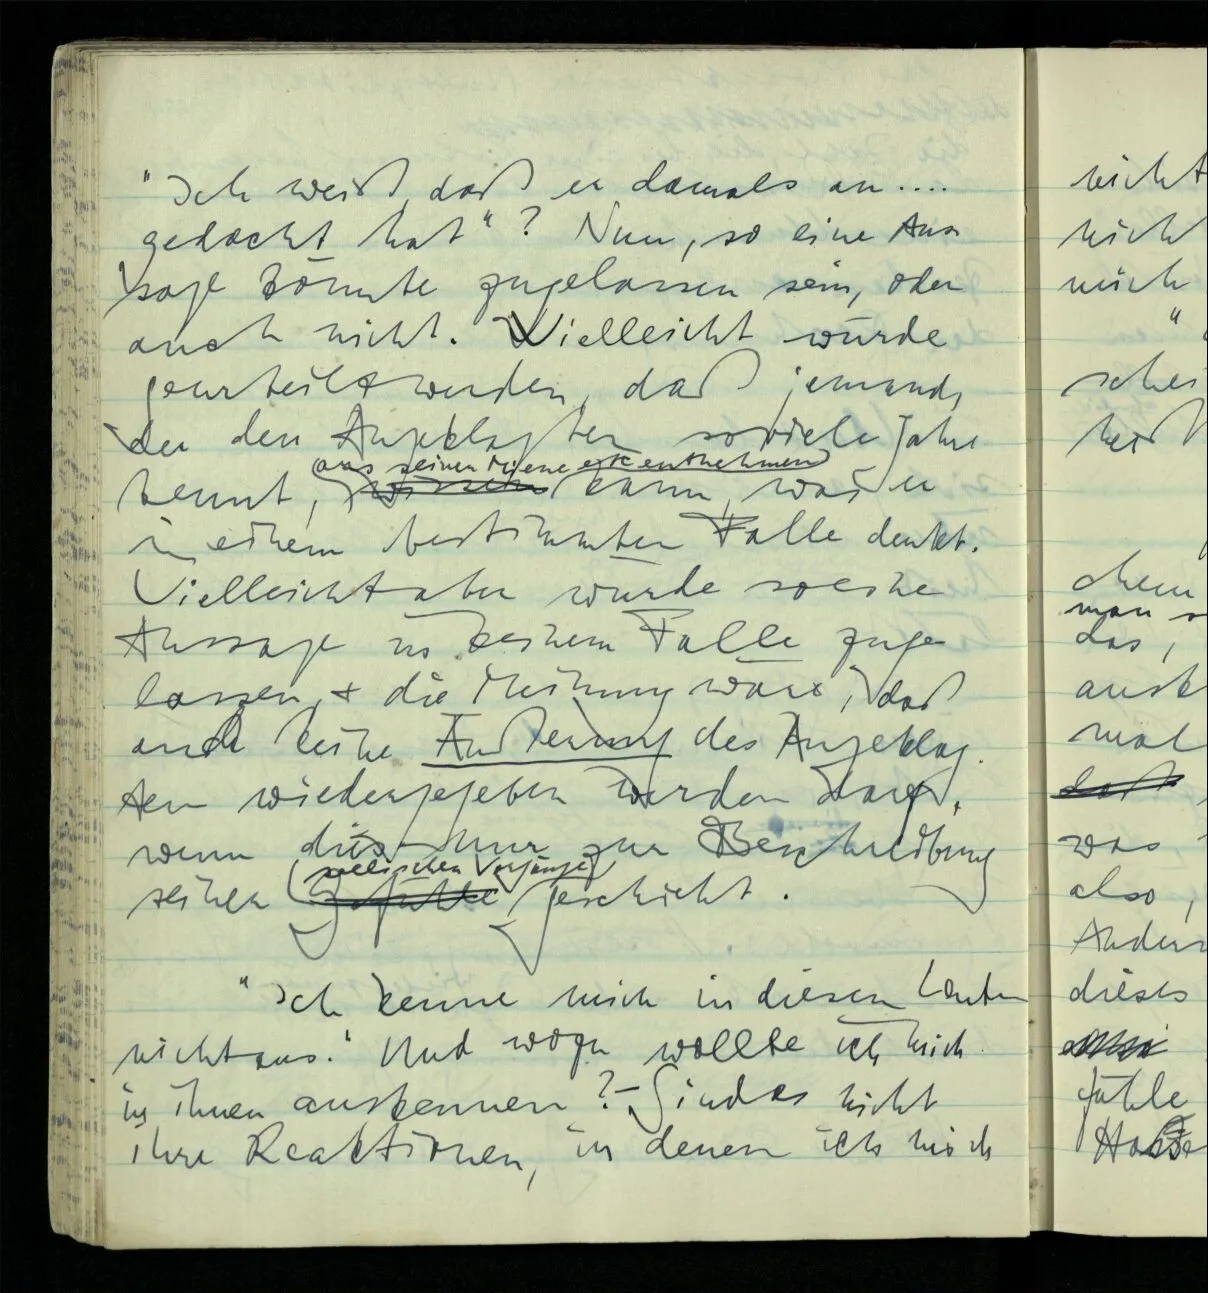 "Ich weiß, daß er damals an....
gedacht hat"? Nun, so eine Aus
sage könnte zugelassen sein, oder
auch nicht. Vielleicht würde
geurteilt werden, daß jemand,
der den Angeklagten soviele Jahre
aus seiner Miene etc entnehmen
kennt, wissen kann, was er
in einem bestimmten Falle denkt.
Vielleicht aber würde solche
Aussage in keinem Falle zuge
lassen, + die Meinung wäre, daß
auch keine Äußerung des Angeklag
ten wiedergegeben werden darf,
wenn dies nur zur Beschreibung
seelischen Vorgänge
seiner Gefühle geschieht.
"Ich kenne mich in diesen Leuten
nicht aus." Und wozu wollte ich mich
in ihnen auskennen? – Sind es nicht
ihre Reaktionen, in denen ich mich
nicht
nich
mich
"
schei
heiß
chem
man s
das,
ausk
mal
das
was
also,
Ander
dieses
fühle